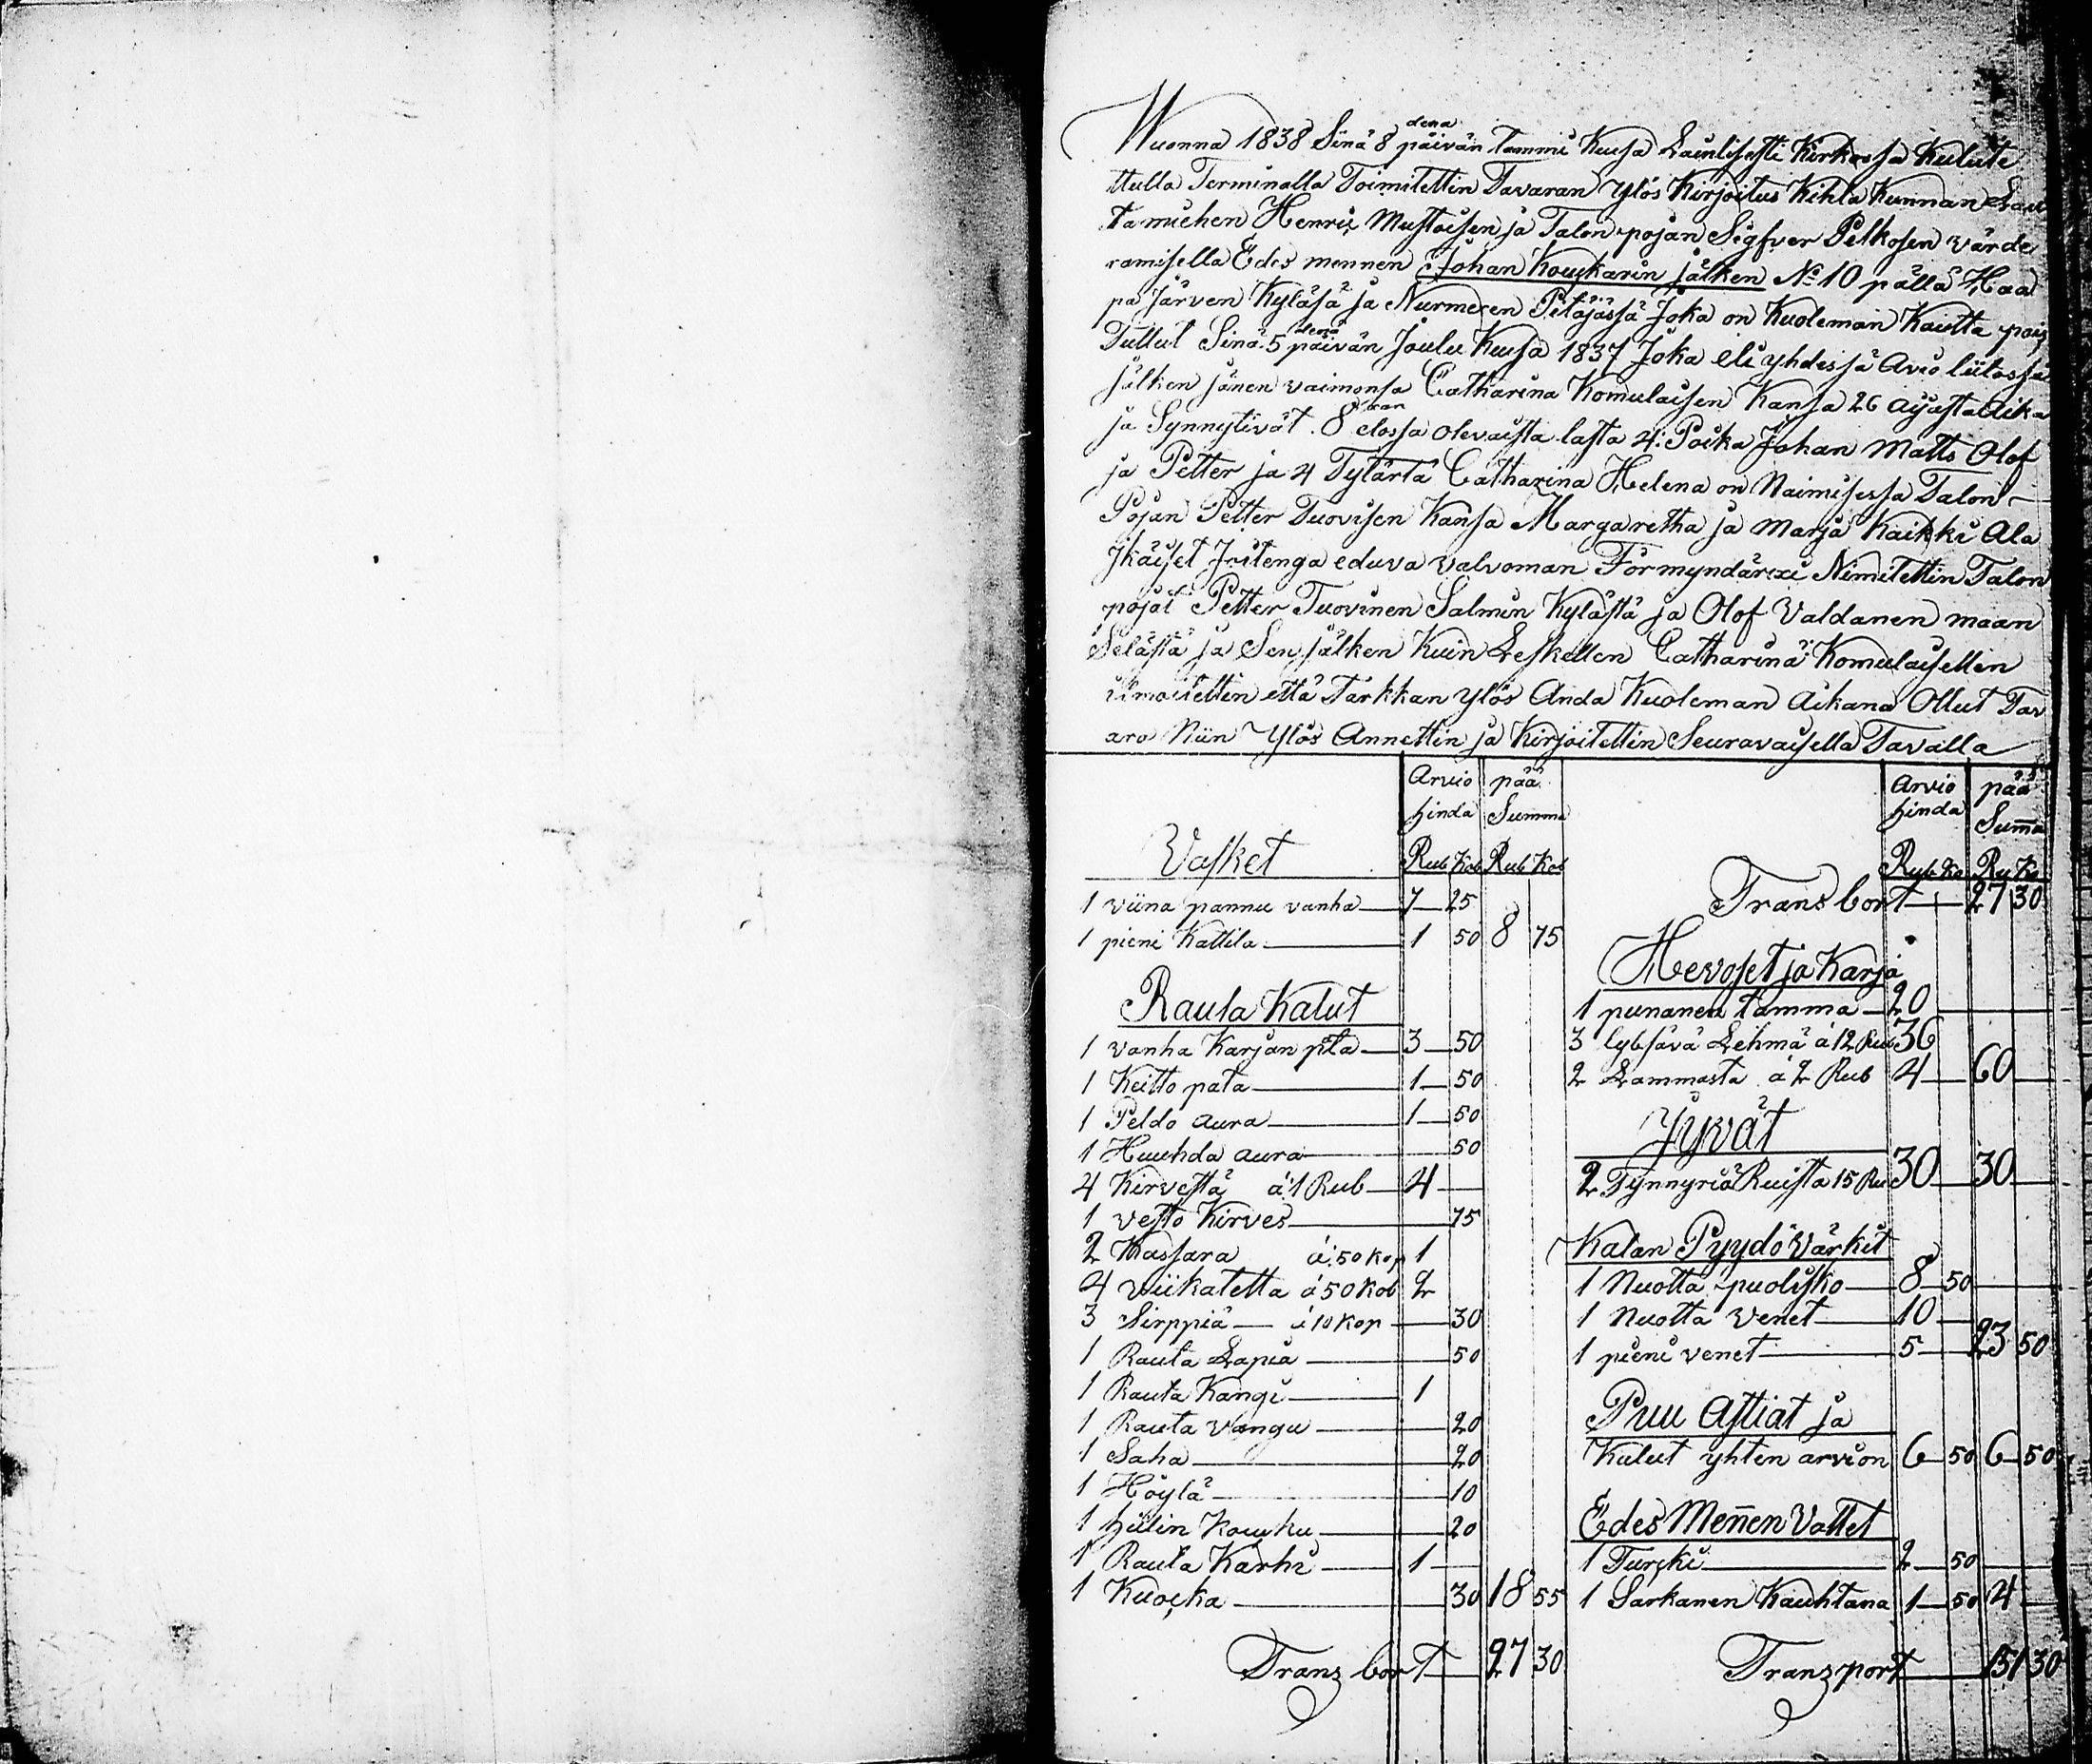 Wuonna 1838 Sinä 8 dena päivän tammi Kuusa Lainlisesti Kirkossa Kuulute
ttulla Terminalla Toimitettin Tavaran Ylös Kirjoitus Kihla Kunnan Lau
ta miehen Henric Mustoisen ja Talon pojan Sigfver Pelkosen värde
ramisella Edes mennen Johan Kouckarin jälken No 10 pällä Haa
pa Järven Kyläsä ja Nurmexen Pitäjässä Joka on Kuoleman Kautta pois
Tullut Sinä 5 denä päivän Joulu Kuusa 1837 Joka eli yhdessä Avio liitossa
jälken jänen vaimonsa Catharina Komulaisen Kansa 26 ajastaika
ja Synnytivät 8 xan elossa olevaista lasta 4: Poika Johan Matts Olof
ja Petter ja 4 Tytärtä Catharina Helena on Naimisessa Talon
Pojan Petter Tuovisen Kansa Margaretha ja Marja Kaikki Ala
Jkäiset Joitenga eduva valvoman Förmyndärixi Nimitettin Talon
pojat Petter Tuovinen Salmin Kylästä ja Olof Valdanen maan
Selästä ja Sen jälken Kuin Leskellen Catharina Komulaisellen
ilmoitettin että Tarkkan ylös Anda Kuoleman Aikana Ollut Tav
ara Niin Ylös Annettin ja Kirjoitettin Seuravaisella Tavalla
Arvio hinda pää Summa
Vasket Rub Kob Rub Kob
1 viina pannu vanha 7 25
1 pieni Kattila 1 50 8 75
Rauta Kalut
1 vanha Karjan pata 3 50
1 Keitto pata 1 50
1 Peldo aura 1 50
1 Huuhda aura 50
4 Kirvestä á 1 Rub 4
1 vesto Kirves 75
2 Kassara á 50 Kop 1
4 viikatetta á 50 Kob 2
3 Sirppiä á 10 Kop 30
1 Rauta Lapia 50
1 Rauta Kangi 1
1 Rauta Vangu 20
1 Saha 20
1 Höylä 10
1 hiilin Koucku 20
1 Rauta Karhi 1
1 Kuocka 30 18 55
Transbort 27 30
Arvio hinda pää Summa
Rub Ko Ru Ko
Transbort 27 30
Hevoset ja Karja
1 punanen tamma 20
3 lybsävä Lehmä á 12 Rub 36
2 Lammasta á 2 Rub 4 60
Jyvät
2 Tynnyriä Ruista 15 Ru 30 30
Kalan Pyydö Värkit
1 Nuotta puolisko 8 50
1 Nuotta venet 10
1 pieni venet 5 23 50
Puu Astiat ja
Kalut yhten arvion 6 50 6 50
Edes Menen Vattet
1 Turcki 2 50
1 Sarkanen Kauhtana 1 50 4
Transport 151 30